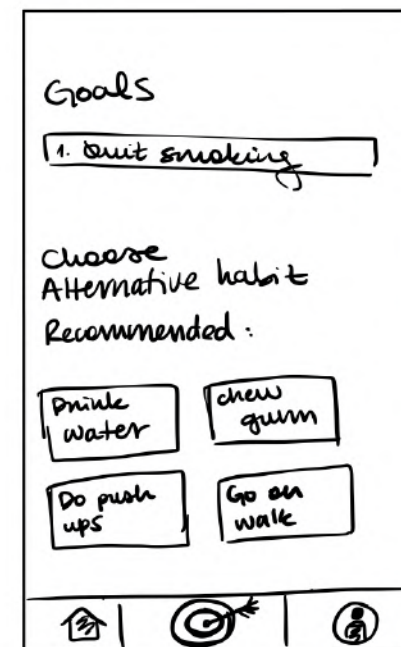 Goals
1. Quit smoking
choose
Alternative habit
Recommended:
Drink
water
chew
gum
Do push
ups
Go on
walk